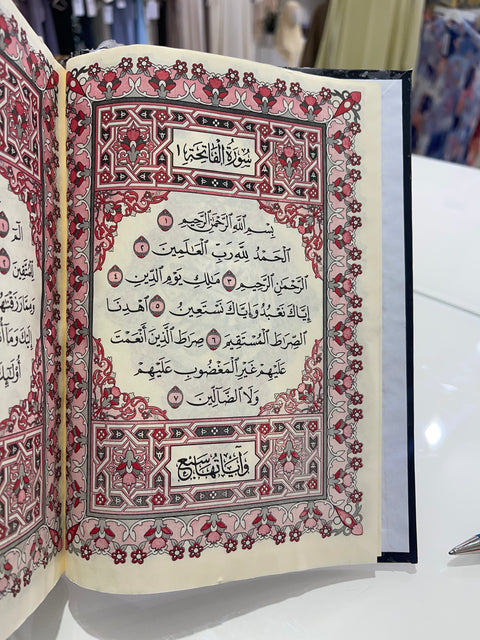 سُورَةُ الْفَاتِحَةِ ١
بِسْمِ اللَّهِ الرَّحْمَٰنِ الرَّحِيمِ ١
الْحَمْدُ لِلَّهِ رَبِّ الْعَالَمِينَ ٢
الرَّحْمَٰنِ الرَّحِيمِ ٣ مَالِكِ يَوْمِ الدِّينِ ٤
إِيَّاكَ نَعْبُدُ وَإِيَّاكَ نَسْتَعِينُ ٥ اهْدِنَا
الصِّرَاطَ الْمُسْتَقِيمَ ٦ صِرَاطَ الَّذِينَ أَنْعَمْتَ
عَلَيْهِمْ غَيْرِ الْمَغْضُوبِ عَلَيْهِمْ
وَلَا الضَّالِّينَ ٧
وَآيَاتُهَا سَبْعٌ
الٓمٓ ١
لِلْمُتَّقِينَ ٢
أُولَٰئِكَ